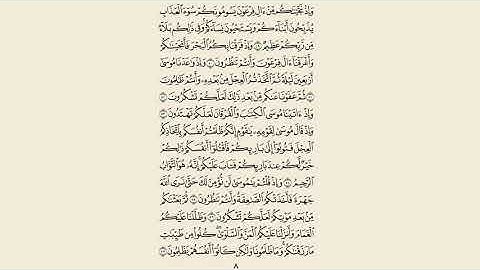 وَإِذْ نَجَّيْنَٰكُم مِّنْ ءَالِ فِرْعَوْنَ يَسُومُونَكُمْ سُوٓءَ ٱلْعَذَابِ
يُذَبِّحُونَ أَبْنَآءَكُمْ وَيَسْتَحْيُونَ نِسَآءَكُمْ وَفِى ذَٰلِكُم بَلَآءٌ
مِّن رَّبِّكُمْ عَظِيمٌ ٤٩ وَإِذْ فَرَقْنَا بِكُمُ ٱلْبَحْرَ فَأَنجَيْنَٰكُمْ
وَأَغْرَقْنَآ ءَالَ فِرْعَوْنَ وَأَنتُمْ تَنظُرُونَ ٥٠ وَإِذْ وَٰعَدْنَا مُوسَىٰٓ
أَرْبَعِينَ لَيْلَةً ثُمَّ ٱتَّخَذْتُمُ ٱلْعِجْلَ مِنۢ بَعْدِهِۦ وَأَنتُمْ ظَٰلِمُونَ
٥١ ثُمَّ عَفَوْنَا عَنكُم مِّنۢ بَعْدِ ذَٰلِكَ لَعَلَّكُمْ تَشْكُرُونَ ٥٢
وَإِذْ ءَاتَيْنَا مُوسَى ٱلْكِتَٰبَ وَٱلْفُرْقَانَ لَعَلَّكُمْ تَهْتَدُونَ ٥٣
وَإِذْ قَالَ مُوسَىٰ لِقَوْمِهِۦ يَٰقَوْمِ إِنَّكُمْ ظَلَمْتُمْ أَنفُسَكُم بِٱتِّخَاذِكُمُ
ٱلْعِجْلَ فَتُوبُوٓا۟ إِلَىٰ بَارِئِكُمْ فَٱقْتُلُوٓا۟ أَنفُسَكُمْ ذَٰلِكُمْ
خَيْرٌ لَّكُمْ عِندَ بَارِئِكُمْ فَتَابَ عَلَيْكُمْ إِنَّهُۥ هُوَ ٱلتَّوَّابُ
ٱلرَّحِيمُ ٥٤ وَإِذْ قُلْتُمْ يَٰمُوسَىٰ لَن نُّؤْمِنَ لَكَ حَتَّىٰ نَرَى ٱللَّهَ
جَهْرَةً فَأَخَذَتْكُمُ ٱلصَّٰعِقَةُ وَأَنتُمْ تَنظُرُونَ ٥٥ ثُمَّ بَعَثْنَٰكُم
مِّنۢ بَعْدِ مَوْتِكُمْ لَعَلَّكُمْ تَشْكُرُونَ ٥٦ وَظَلَّلْنَا عَلَيْكُمُ
ٱلْغَمَامَ وَأَنزَلْنَا عَلَيْكُمُ ٱلْمَنَّ وَٱلسَّلْوَىٰ كُلُوا۟ مِن طَيِّبَٰتِ
مَا رَزَقْنَٰكُمْ وَمَا ظَلَمُونَا وَلَٰكِن كَانُوٓا۟ أَنفُسَهُمْ يَظْلِمُونَ ٥٧
٨